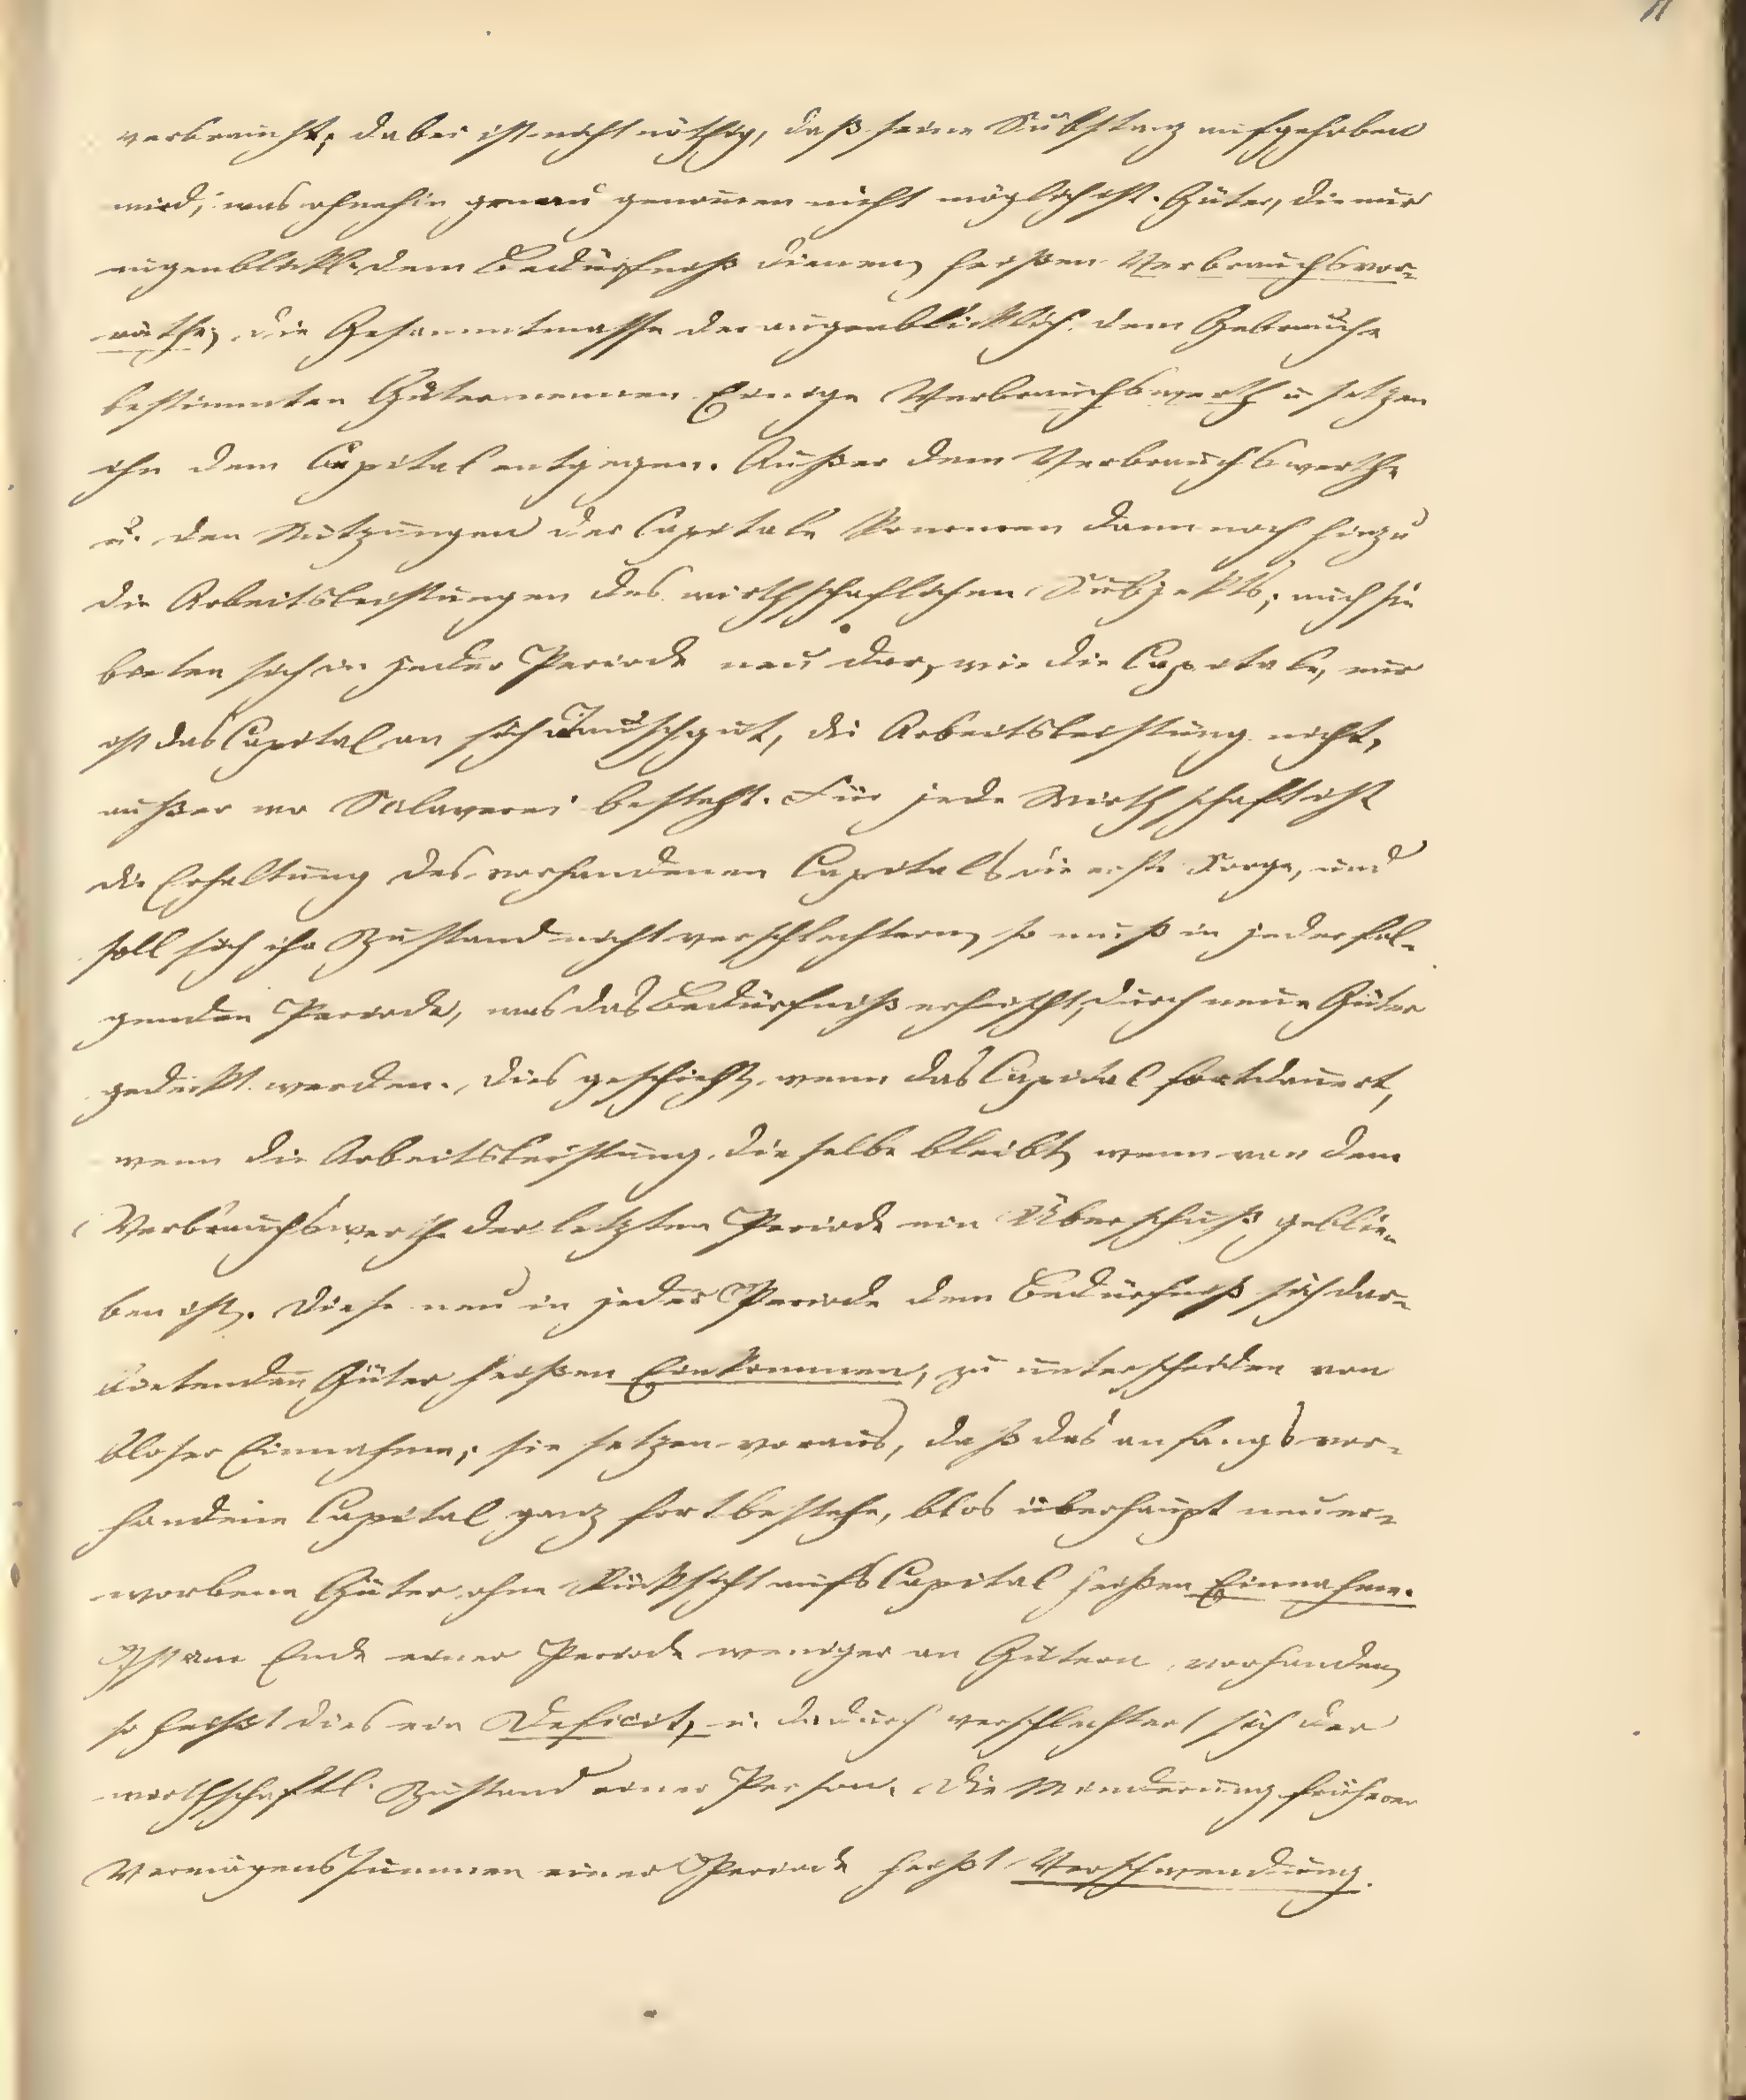 11
verbraucht; dabei ist nicht nöthig, daß seine Substanz aufgehoben
wird, was ohnehin genau genommen nicht möglich ist. Güter, die nur
augenblickl. dem Bedürfniß dienen, heißen Verbrauchsvor-
räthe; die Gesammtmasse der augenblicklich dem Gebrauche
bestimmten Güter nennen Einige Verbrauchswerth u. setzen
ihn dem Capital entgegen. Außer dem Verbrauchswerthe
u. den Nutzungen der Capitale kommen dann noch hinzu
die Arbeitsleistungen des wirthschaftlichen Subjekts; auch sie
bieten sich in jeder Periode neu dar, wie die Capitale, nur
ist das Capital an sich Tauschgut, die Arbeitsleistung nicht,
außer wo Sclaverei besteht. Für jede Wirthschaft ist
die Erhaltung des vorhandenen Capitals die erste Sorge, und
soll sich ihr Zustand nicht verschlechtern, so muß in jeder fol-
genden Periode, was das Bedürfniß erheischt, durch neue Güter
gedeckt werden. Dies geschieht, wenn das Capital fortdauert,
wenn die Arbeitsleistung dieselbe bleibt, wenn von dem
Verbrauchswerthe der letzten Periode ein Überschuß geblie-
ben ist. Diese neu in jeder Periode dem Bedürfniß sich dar-
bietenden Güter heißen Einkommen, zu unterscheiden von
bloser Einnahme; sie setzen voraus, daß das anfangs vor-
handene Capital ganz fortbestehe, blos überhaupt neuer-
worbene Güter ohne Rücksicht aufs Capital heißen Einnahme.
Ist am Ende einer Periode weniger an Gütern vorhanden,
so heißt dies ein Deficit, u. dadurch verschlechtert sich der
wirthschaftl. Zustand einer Person. Die Minderung früherer
Vermögenssummen einer Periode heißt Verschwendung.